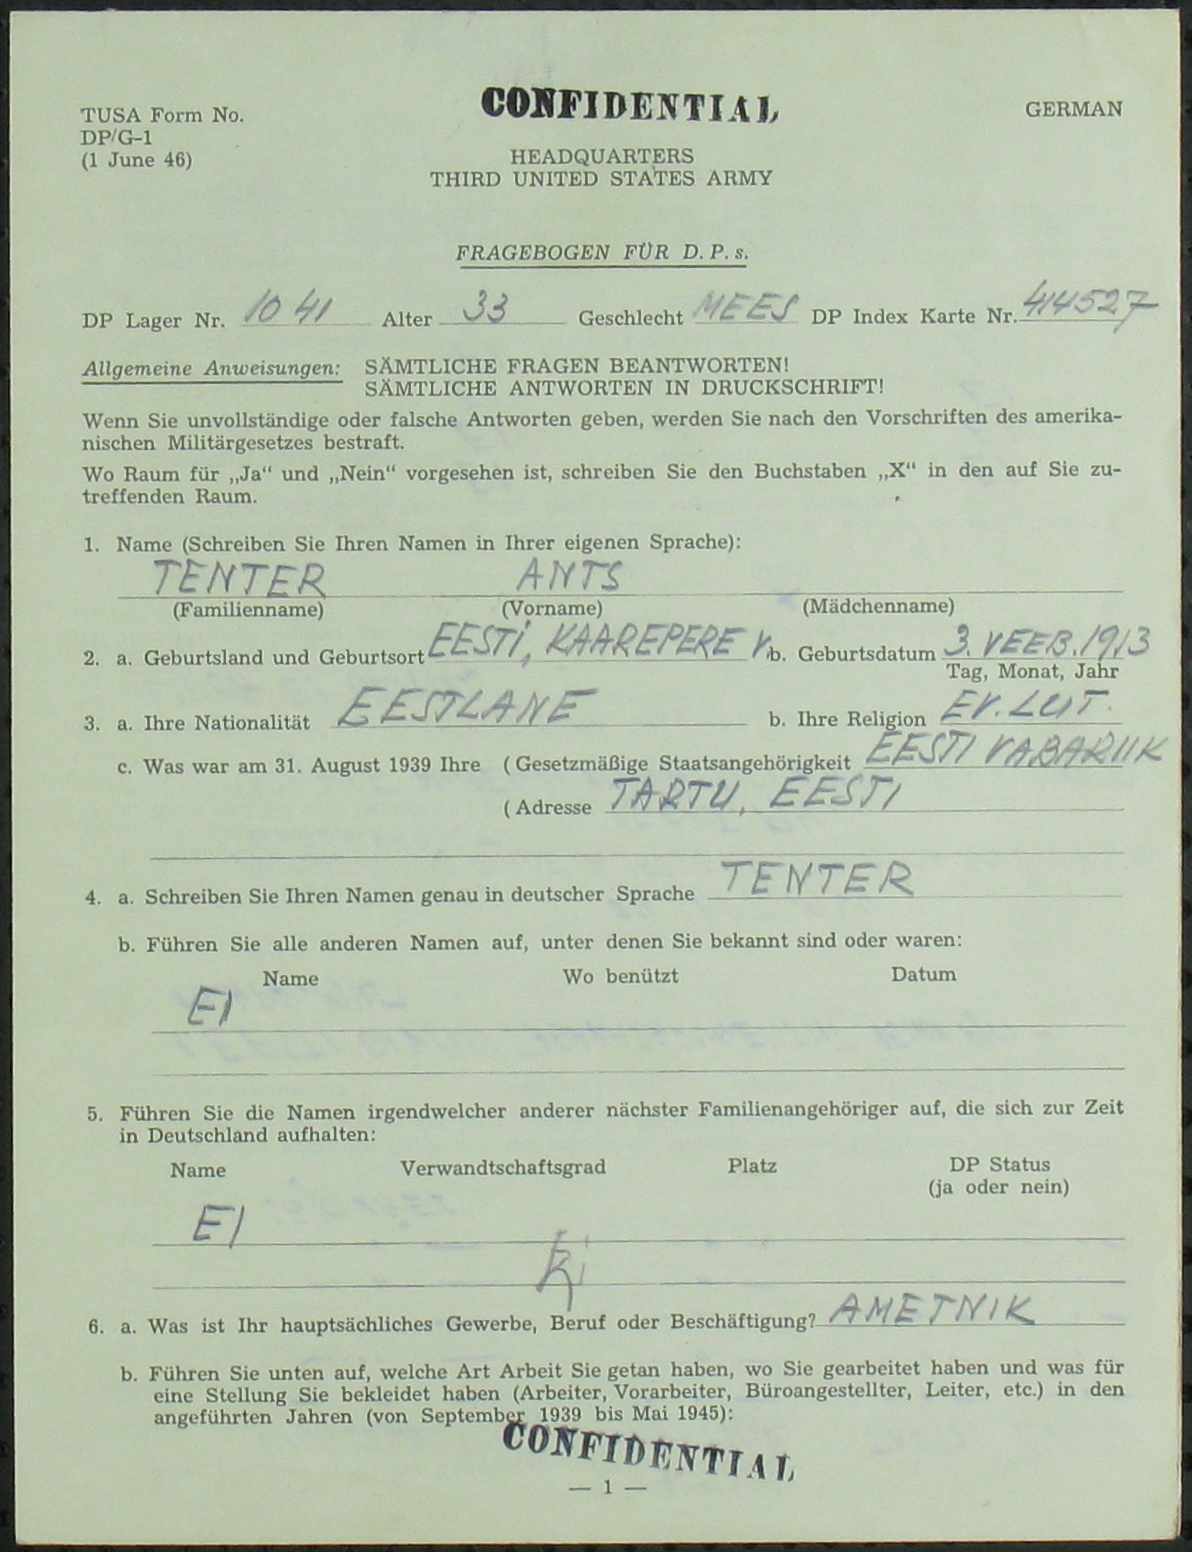 CONFIDENTIAL
TUSA Form No.
DP/G-1
(1 June 46)
GERMAN
HEADQUARTERS
THIRD UNITED STATES ARMY
FRAGEBOGEN FÜR D. P. s.
DP Lager Nr. 1041 Alter 33 Geschlecht MEES DP Index Karte Nr. 414527
Allgemeine Anweisungen: SÄMTLICHE FRAGEN BEANTWORTEN!
SÄMTLICHE ANTWORTEN IN DRUCKSCHRIFT!
Wenn Sie unvollständige oder falsche Antworten geben, werden Sie nach den Vorschriften des amerika-
nischen Militärgesetzes bestraft.
Wo Raum für „Ja“ und „Nein“ vorgesehen ist, schreiben Sie den Buchstaben „X“ in den auf Sie zu-
treffenden Raum.
1. Name (Schreiben Sie Ihren Namen in Ihrer eigenen Sprache):
TENTER ANTS
(Familienname) (Vorname) (Mädchenname)
2. a. Geburtsland und Geburtsort EESTI, KAAREPERE V. b. Geburtsdatum 3. VEEB. 1913
Tag, Monat, Jahr
3. a. Ihre Nationalität EESTLANE b. Ihre Religion EV. LUT.
c. Was war am 31. August 1939 Ihre ( Gesetzmäßige Staatsangehörigkeit EESTI VABARIIK
( Adresse TARTU, EESTI
4. a. Schreiben Sie Ihren Namen genau in deutscher Sprache TENTER
b. Führen Sie alle anderen Namen auf, unter denen Sie bekannt sind oder waren:
Name Wo benützt Datum
EI
5. Führen Sie die Namen irgendwelcher anderer nächster Familienangehöriger auf, die sich zur Zeit
in Deutschland aufhalten:
Name Verwandtschaftsgrad Platz DP Status
(ja oder nein)
EI
6. a. Was ist Ihr hauptsächliches Gewerbe, Beruf oder Beschäftigung? AMETNIK
b. Führen Sie unten auf, welche Art Arbeit Sie getan haben, wo Sie gearbeitet haben und was für
eine Stellung Sie bekleidet haben (Arbeiter, Vorarbeiter, Büroangestellter, Leiter, etc.) in den
angeführten Jahren (von September 1939 bis Mai 1945):
CONFIDENTIAL
— 1 —